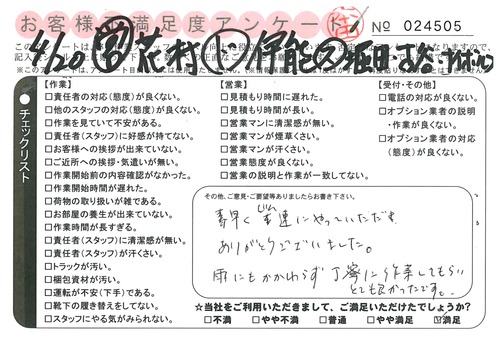 お客様満足度アンケート
No 024505
4/20
花村
【作業】
□責任者の対応(態度)が良くない。
□他のスタッフの対応(態度)が良くない。
□作業を見ていて不安がある。
□責任者(スタッフ)に好感が持てない。
□お客様への挨拶が出来ていない。
□ご近所への挨拶・気遣いが無い。
□作業開始前の内容確認がなかった。
□作業開始時間が遅れた。
□荷物の取り扱いが雑である。
□お部屋の養生が出来ていない。
□作業時間が長すぎる。
□責任者(スタッフ)に清潔感が無い。
□責任者(スタッフ)が汗くさい。
□トラックが汚い。
□梱包資材が汚い。
□運転が不安(下手)である。
□靴下の履き替えをしてない。
□スタッフにやる気がみられない。
【営業】
□見積もり時間に遅れた。
□見積もり時間が長い。
□営業マンに清潔感が無い。
□営業マンが煙草くさい。
□営業マンが汗くさい。
□営業態度が良くない。
□営業の説明と作業が一致してない。
【受付・その他】
□電話の対応が良くない。
□オプション業者の説明
・作業が良くない。
□オプション業者の対応
(態度)が良くない。
チェックリスト
その他、ご意見・ご要望等ありましたらお書き下さい。
素早く迅速にやっていただき
ありがとうございました。
雨にもかかわらず丁寧に作業してもらい
とても良かったです。
☆当社をご利用いただきまして、ご満足いただけたでしょうか?
□不満 □やや不満 □普通 □やや満足 ☑満足